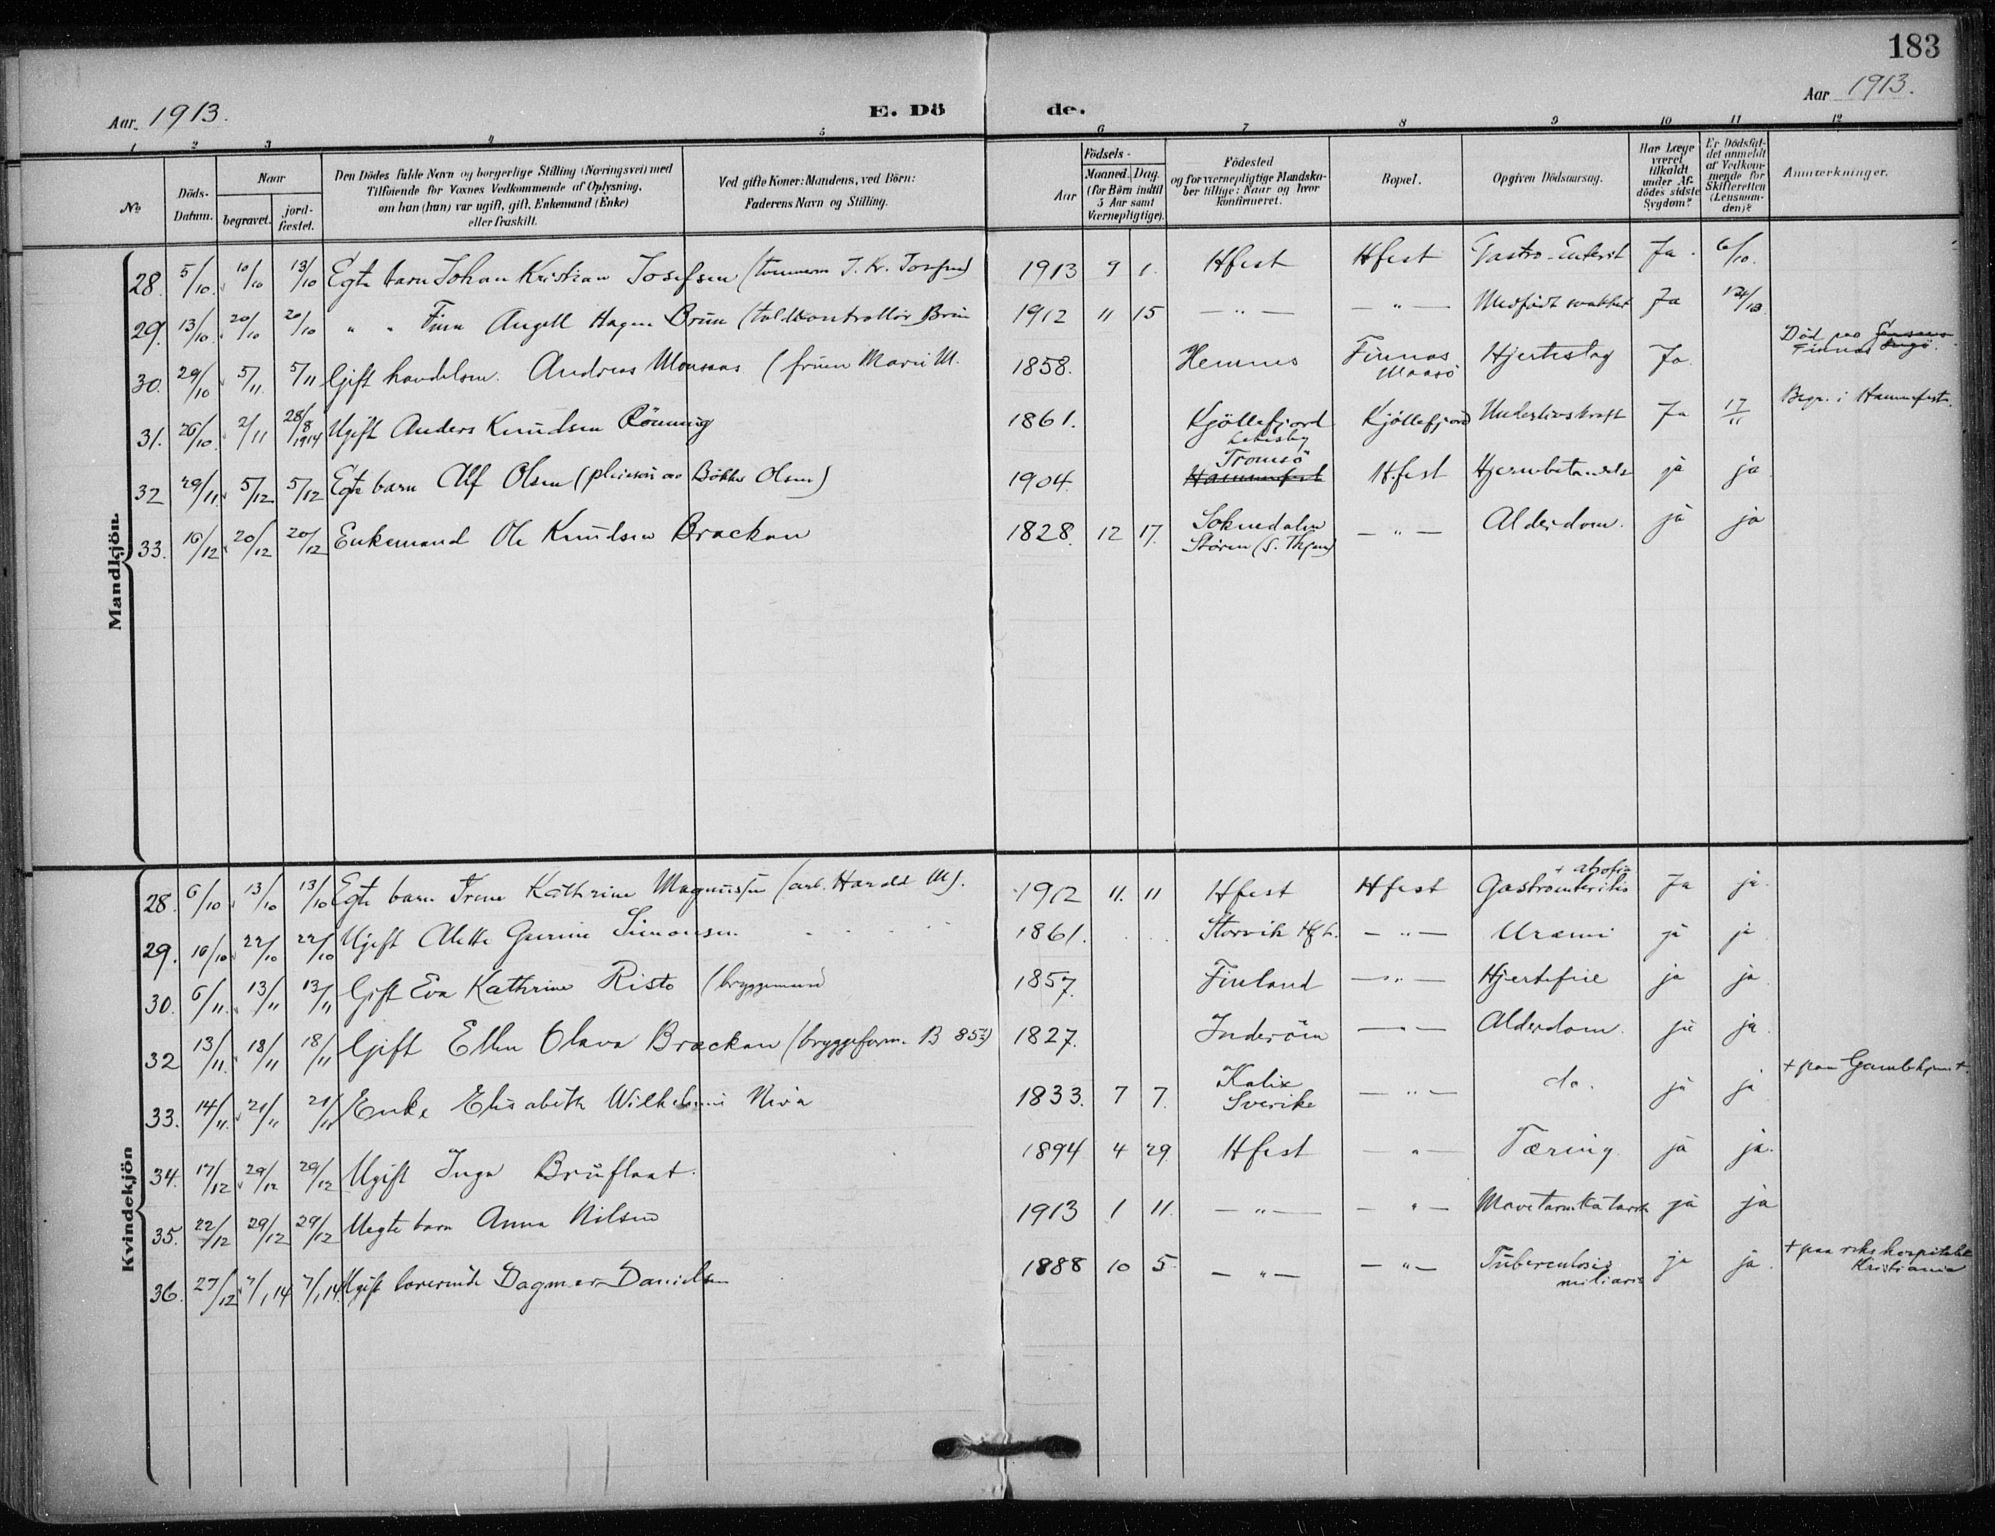 183
Aar 1913.
E. Dö de.
Aar 1913.
1 2 3 4 5 6 7 8 9 10 11 12
№
Döds-Datum.
Naar
begravet.
jord-fæstet.
Den Dödes fulde Navn og borgerlige Stilling (Næringsvei) med
Tilföiende for Voxnes Vedkommende af Oplysning,
om han (hun) var ugift, gift, Enkemand (Enke)
eller fraskilt.
Ved gifte Koner: Mandens, ved Börn:
Faderens Navn og Stilling.
Födsels-
Aar
Maaned. Dag.
(for Börn indtil
5 Aar samt
Værnepligtige).
Födested
og for værnepligtige Mandska-
ber tillige: Naar og hvor
konfirmeret.
Bopæl.
Opgiven Dödsaarsag.
Har Læge
været
tilkaldt
under Af-
dödes sidste
Sygdom?
Er Dödsfal-
det anmeldt
af Vedkom-
mende for
Skifteretten
(Lensman-
den)?
Anmærkninger.
Mandkjön.
28. 5/10. 10/10 13/10 Egte barn Johan Kristian Josefsen (tømmerm J. Kr. Josefsen) 1913 9 1. Hfest Hfest Gastro-Enterit Ja. 6/10.
29. 13/10. 20/10 20/10 " " Finn Angell Hagen Bruun (toldkontrollør Bruun 1912 11 15 — " — — " — Medfødt svakhet Ja
30. 29/10 5/11. 5/11 Gift handelsm. Andreas Monsaas (fruen Marie M. 1858. Hemnes Finnas Maasö Hjerteslag Ja. Död paa
Finnas
31. 26/10. 2/11 28/8 1914 Ugift Anders Knudsen Rönning 1861. Kjöllefjord Lebesby Kjöllefjord Underlivskræft Ja 17/11 Begr. i Hammerfest.
32 29/11. 5/12. 5/12 Egte barn Alf Olsen (pleiesøn av Bøkker Olsen) 1904. Tromsö Hammerfest H.fest Hjernebetændelse ja ja
33. 16/12 20/12 20/12 Enkemand Ole Knudsen Brackan 1828. 12 17. Soknedalen Støren (S. Thjem) — " — Alderdom. ja ja
Kvindekjön
28. 6/10 13/10 13/10 Egte barn Irene Kathrine Magnussen (arb. Harald M). 1912 11. 11 Hfest Hfest Gastroenteritis + atrofia Ja ja.
29. 16/10 22/10 22/10 Ugift Alette Gurine Simonsen 1861. Storvik Hf L. — " — Uræmi ja ja
30. 6/11. 13/11 13/11 Gift Eva Kathrine Risto (bryggemand 1857. Finland — " — Hjertefeil ja ja
32 13/11. 18/11 18/11 Gift Ellen Olava Brackan (bryggeform. B 85½) 1827. Inderöen — " — Alderdom. ja ja.
33. 14/11. 21/11 21/11 Enke Elisabeth Wilhelmine Niva 1833. 7 7. Kalix Sverike — " — do. ja ja + paa Gamlehjemmet.
34. 17/12 29/12 29/12 Ugift Inga Bruflaat. 1894 4 29 Hfest — " — Tæring. ja ja.
35. 22/12 29/12 29/12 Uegte barn Anna Nilsen 1913 1 11. — " — — " — Mavetarmkatarrh ja ja
36. 27/12 7/1 14 7/1 14. Ugift lærerinde Dagmar Danielsen 1888 10 5. — " — — " — Tuberculosis miliaris ja ja. + paa rikshospitalet
Kristiania